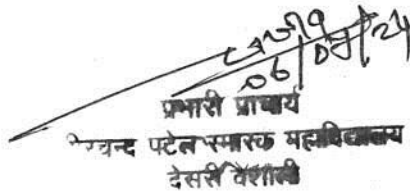 06/08/24
प्रभारी प्राचार्य
चन्द पटेल स्मारक महाविद्यालय
देसरी वैशाली